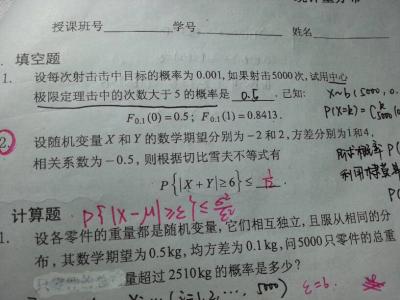 授课班号 学号 姓名
填空题
1. 设每次射击击中目标的概率为 0.001,如果射击5000次,试用中心
极限定理击中的次数大于 5 的概率是 0.5 . 已知: X~b(5000, 0.
F₀.₁(0)=0.5; F₀.₁(1)=0.8413. P(X=k)=C
2. 设随机变量 X 和 Y 的数学期望分别为 −2 和 2,方差分别为1和4,
相关系数为 −0.5,则根据切比雪夫不等式有
P{|X+Y|≥6}≤ 1/12 .
利用
计算题 P{|X-μ|≥ε}≤σ²/ε²
1. 设各零件的重量都是随机变量,它们相互独立,且服从相同的分
布,其数学期望为0.5kg,均方差为0.1kg,问5000只零件的总重
量超过2510kg的概率是多少?
(i=1,2,…, 5000) ε=6.